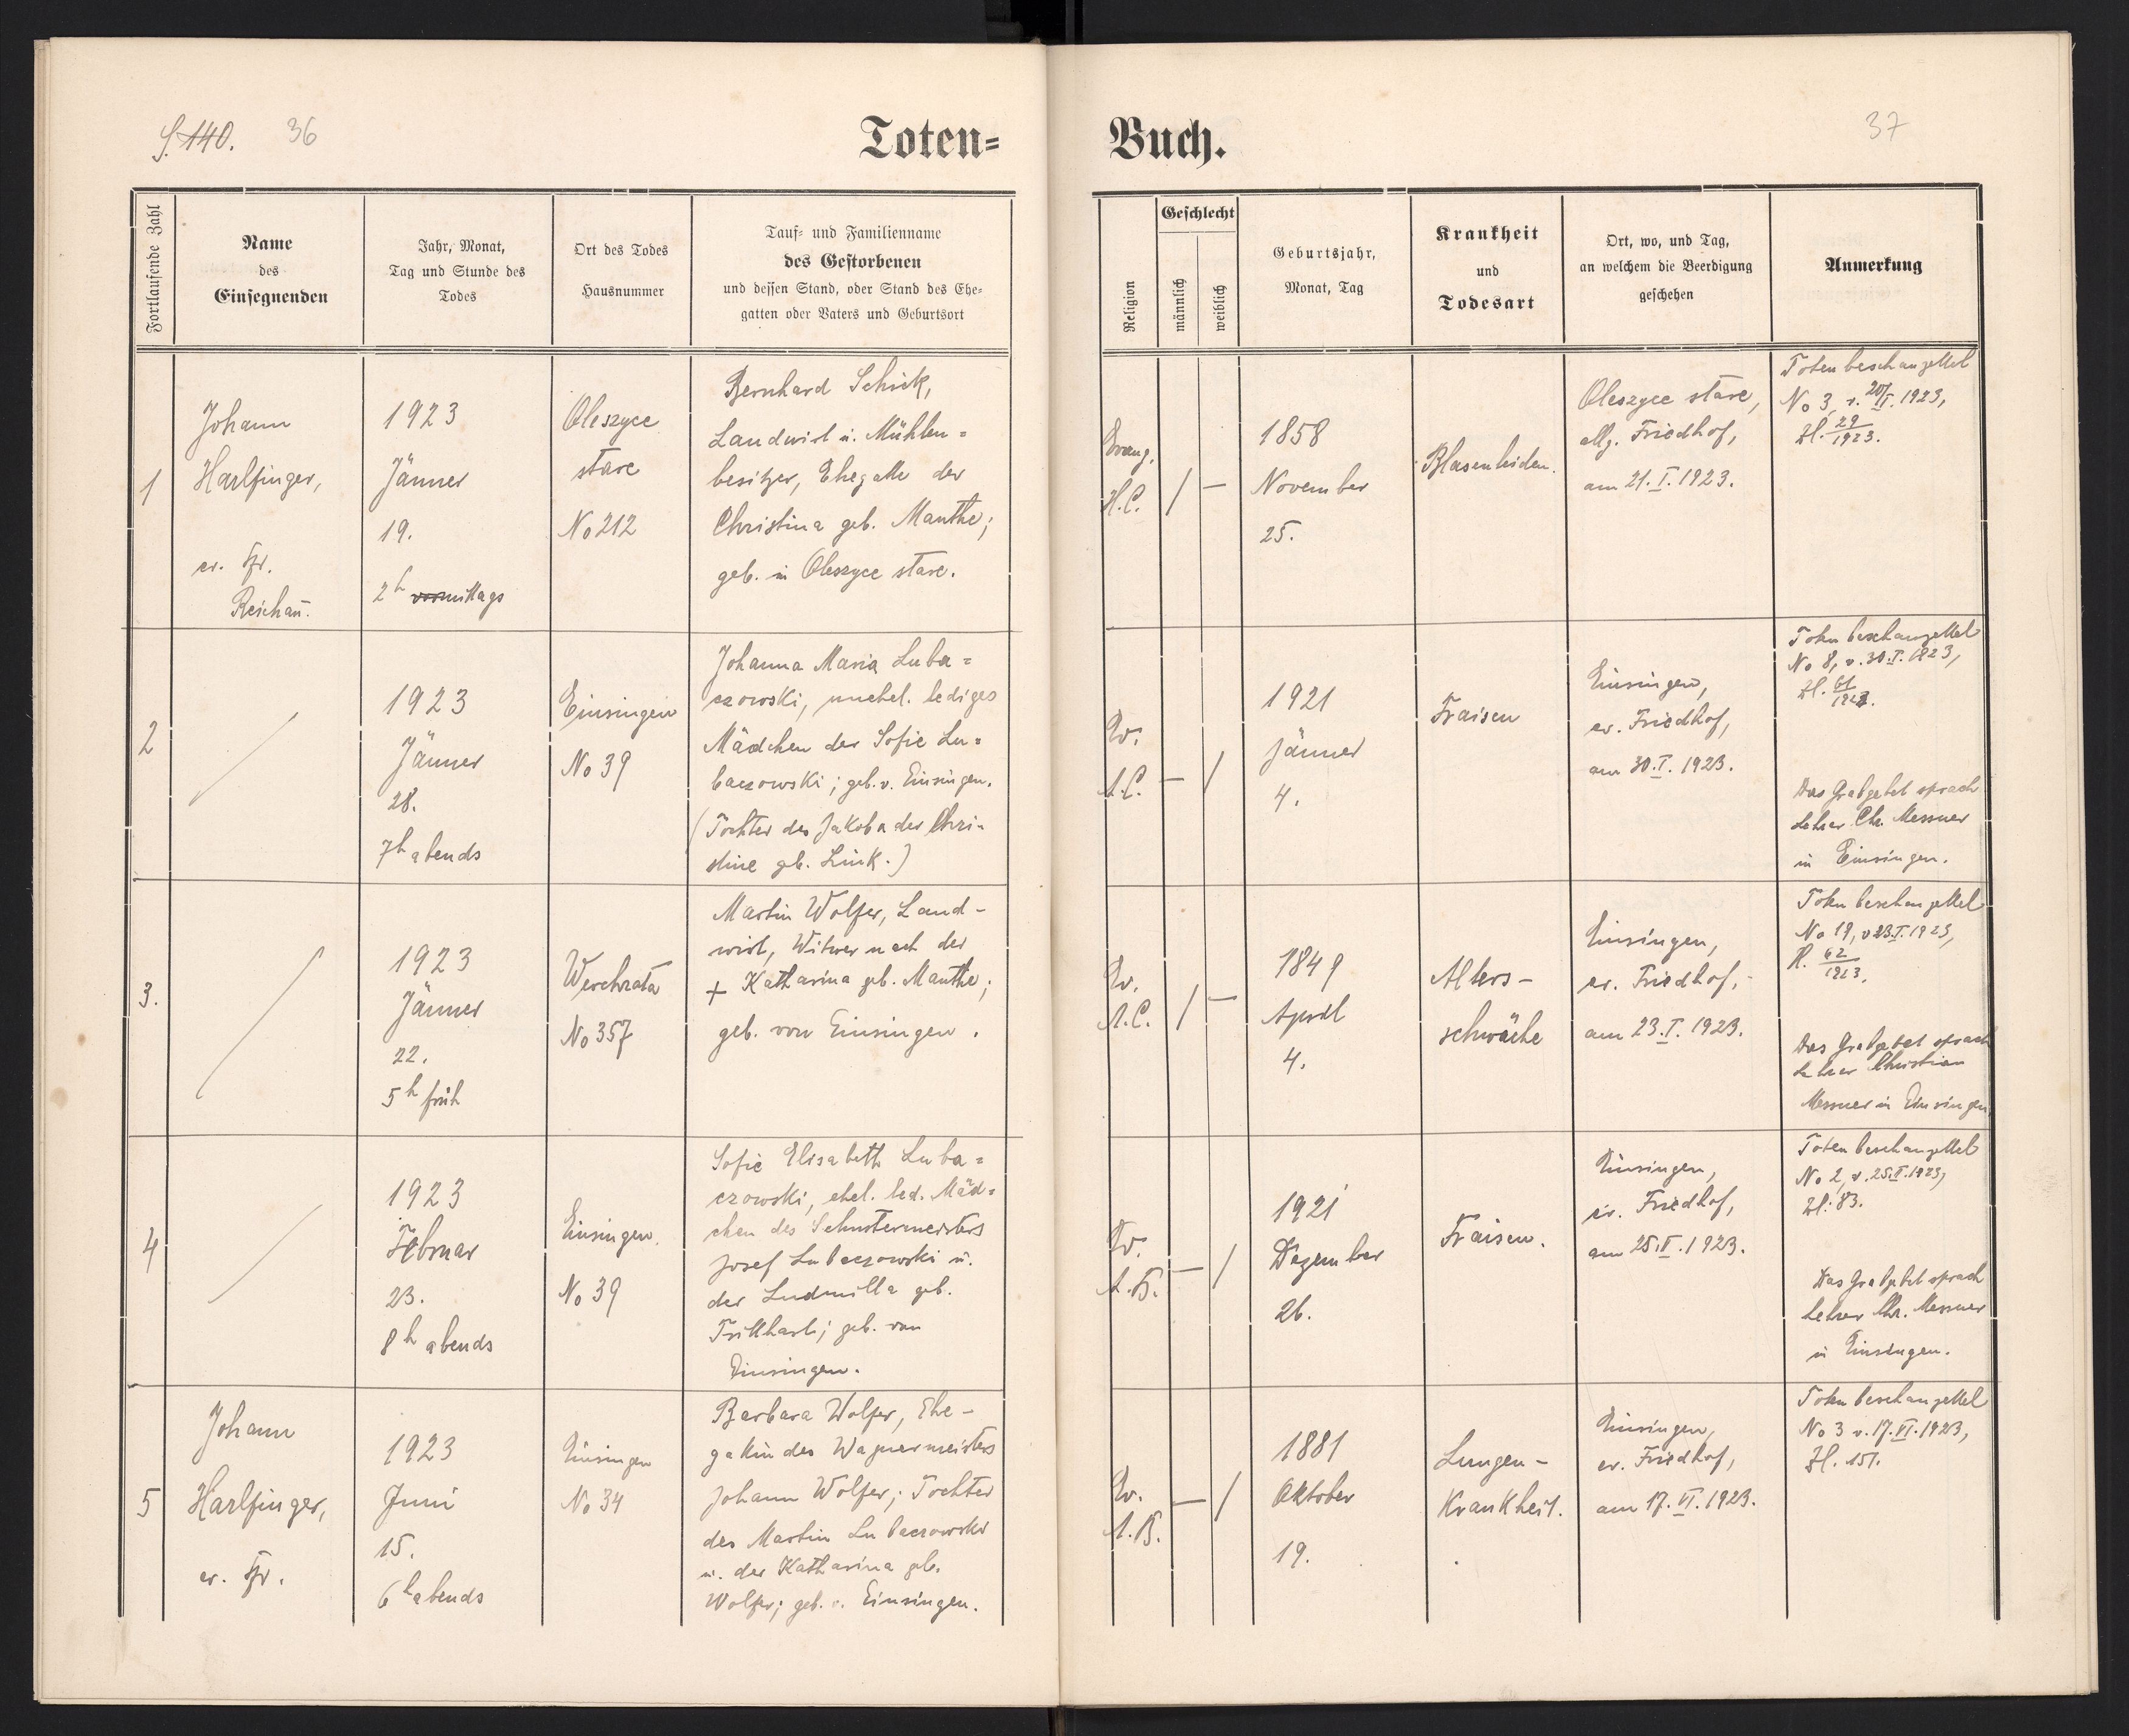 S. 140. 36
Toten=
Buch.
37
Fortlaufende Zahl
Name
des
Einsegnenden
Jahr, Monat,
Tag und Stunde des
Todes
Ort des Todes
Hausnummer
Tauf= und Familienname
des Gestorbenen
und dessen Stand, oder Stand des Ehe=
gatten oder Vaters und Geburtsort
Religion
Geschlecht
männlich
weiblich
Geburtsjahr,
Monat, Tag
Krankheit
und
Todesart
Ort, wo, und Tag,
an welchem die Beerdigung
geschehen
Anmerkung
1
Johann
Harlfinger,
ev. Pfr.
Reichau.
1923
Jänner
19.
2h vormittags
Oleszyce
stare
No 212
Bernhard Schick,
Landwirt u. Mühlen=
besitzer, Ehegatte der
Christina geb. Manthe;
geb. in Oleszyce stare.
Evang.
H.C.
/ —
1858
November
25.
Blasenleiden.
Oleszyce stare,
allg. Friedhof,
am 21. I. 1923.
Totenbeschauzettel
No 3, v. 20/I. 1923,
Zl. 29/1923.
2
1923
Jänner
28.
7h abends
Einsingen
No 39
Johanna Maria Luba=
czowski, unehel. lediges
Mädchen der Sofie Lu=
baczowski; geb. v. Einsingen.
(Tochter des Jakob a der Chri-
stine geb. Link.)
Ev.
A.C.
— /
1921
Jänner
4.
Fraisen
Einsingen,
ev. Friedhof,
am 30. I. 1923.
Totenbeschauzettel
No 8, v. 30. I. 1923,
Zl. 61/1923.
Das Grabgebet sprach
Lehrer Chr. Messner
in Einsingen.
3.
1923
Jänner
22.
5h früh
Werchrata
No 357
Martin Wolfer, Land-
wirt, Witwer nach der
+ Katharina geb. Manthe;
geb. von Einsingen.
Ev.
A.C.
/ —
1849
April
4.
Alters-
schwäche
Einsingen,
ev. Friedhof,
am 23. I. 1923.
Totenbeschauzettel
No 19, v 23. I. 1923,
Zl. 62/1923.
Das Grabgebet sprach
Lehrer Christian
Messner in Einsingen
4
1923
Februar
23.
8h abends
Einsingen.
No 39
Sofie Elisabeth Luba=
czowski, ehel. led. Mäd=
chen des Schustermeisters
Josef Lubaczowski u.
der Ludmilla geb.
geb. von
Einsingen.
Ev.
A.B.
— /
1921
Dezember
26.
Fraisen.
Einsingen,
ev. Friedhof,
am 25. II. 1923.
Totenbeschauzettel
No 2, v. 25. II. 1923,
Zl. 83.
Das Grabgebet sprach
Lehrer Chr. Messner
in Einsingen.
5
Johann
Harlfinger,
ev. Pfr.
1923
Juni
15.
6h abends
Einsingen
No 34
Barbara Wolfer, Ehe-
gattin des Wagnermeisters
Johann Wolfer; Tochter
des Martin Lubaczowski
u. der Katharina geb.
Wolfer; geb. v. Einsingen.
Ev.
A.B.
— /
1881
Oktober
19.
Lungen-
Krankheit.
Einsingen,
ev. Friedhof,
am 17. VI. 1923.
Totenbeschauzettel
No 3 v. 17. VI. 1923,
Zl. 151.